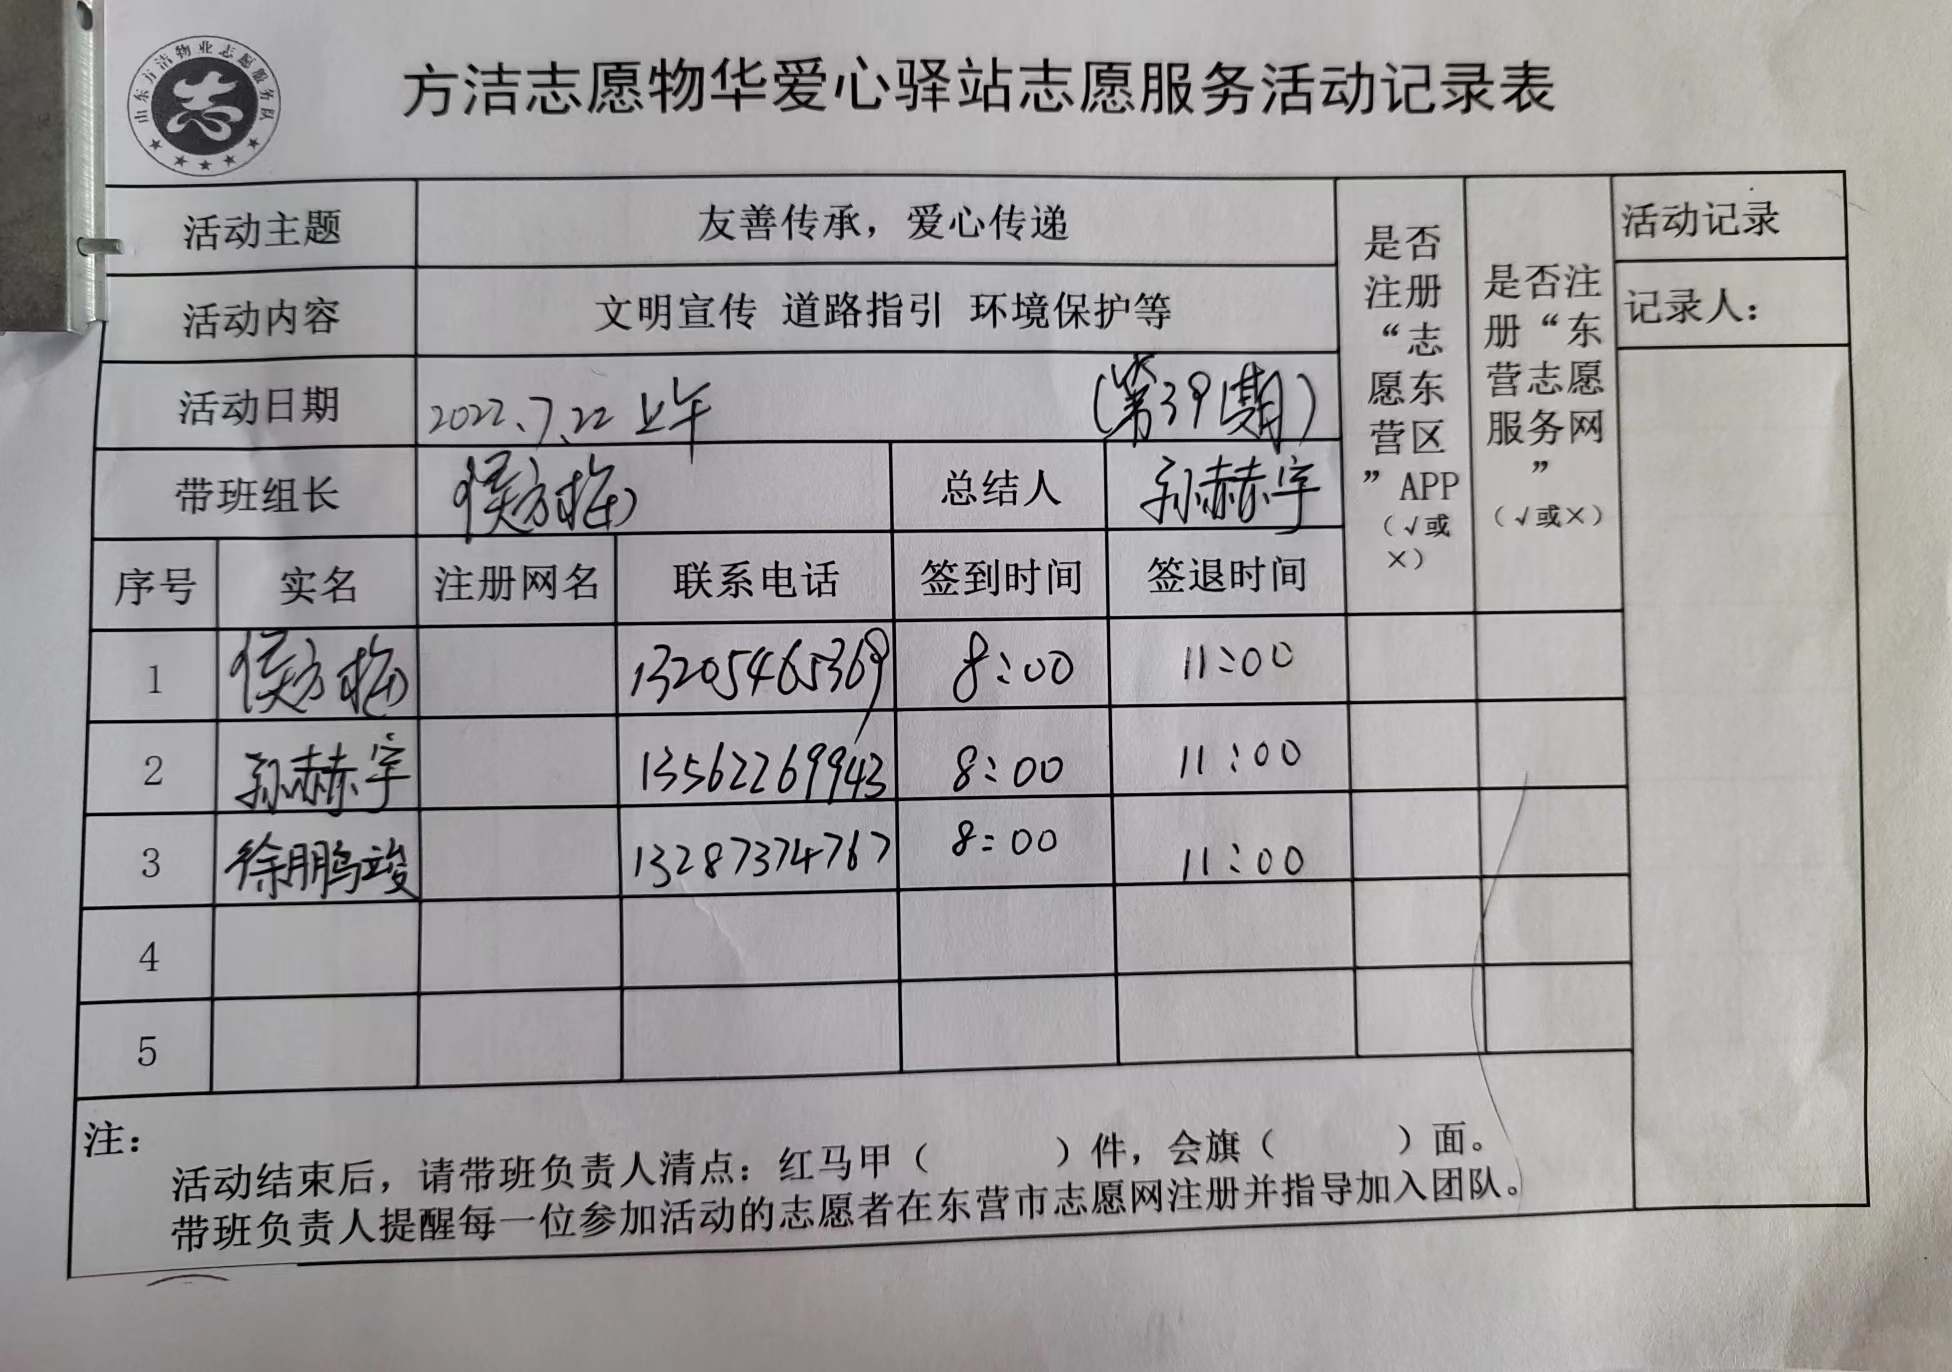 山东方洁物业志愿服务队
志
方洁志愿物华爱心驿站志愿服务活动记录表
活动主题 友善传承，爱心传递
活动内容 文明宣传 道路指引 环境保护等
活动日期 2022.7.22 上午 (第391期)
带班组长 侯方梅 总结人 孙赫宇
是否
注册
“志
愿东
营区
”APP
（√或
×）
是否注
册“东
营志愿
服务网
”
（√或×）
活动记录
记录人：
序号 实名 注册网名 联系电话 签到时间 签退时间
1 侯方梅 13205465369 8:00 11:00
2 孙赫宇 13562269943 8:00 11:00
3 徐鹏竣 13287374767 8:00 11:00
4
5
注：
活动结束后，请带班负责人清点：红马甲（ ）件，会旗（ ）面。
带班负责人提醒每一位参加活动的志愿者在东营市志愿网注册并指导加入团队。